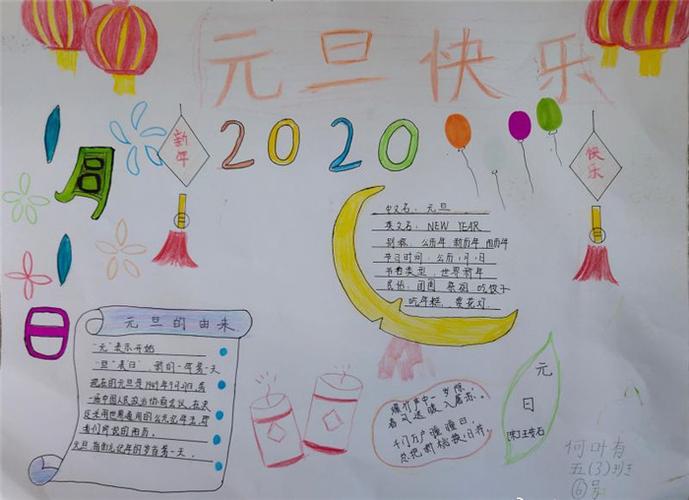 元旦快乐
新年
2020
快乐
1月1日
中文名：元旦
英文名：NEW YEAR
别称：公历年 新历年 阳历年
节日时间：公历1月1日
节日类型：世界新年
民俗：团圆 祭祖 吃饺子
吃年糕 卖花灯
元旦的由来
"元"表示开始
"旦"表"日"，新的一年第一天
现在的元旦是1949年9月27日，第
一届中国人民政治协商会议，在决
历年
元旦，指公元记年的岁首第一天。
爆竹声中一岁除，
春风送暖入屠苏。
千门万户曈曈日，
总把新桃换旧符。
元日
[宋]王安石
何叶有
五(3)班
⑥号